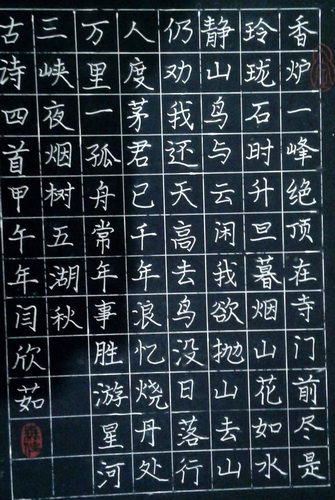 香炉一峰绝顶在寺门前尽是
玲珑石时升旦暮烟山花如水
静山鸟与云闲我欲抛山去山
仍劝我还天高去鸟没日落行
人度茅君已千年浪忆烧丹处
万里一孤舟常年事胜游星河
三峡夜烟树五湖秋
古诗四首甲午年闫欣茹